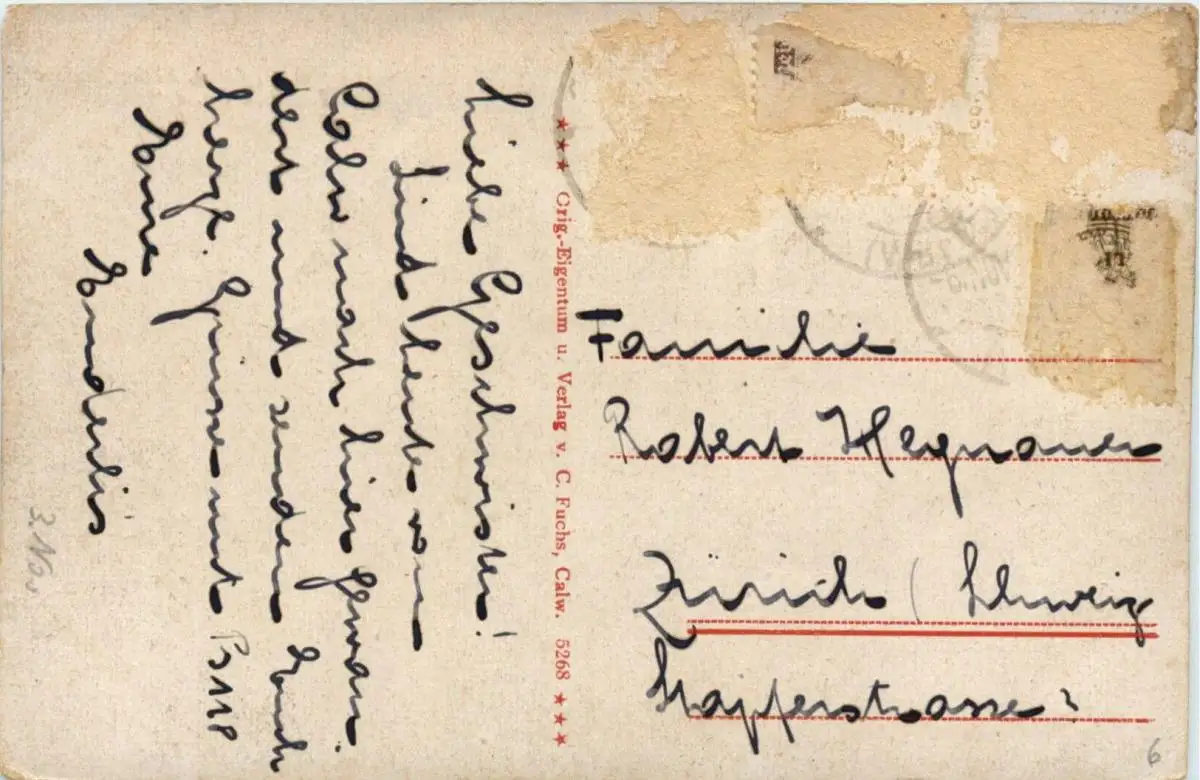 Liebe Geschwister!
Sind heute von
Calw nach hier gewan-
dert und senden Euch
herzl. Grüsse mit Ps 118
Eure
Enderlis
3. Nov.
★★★ Orig.-Eigentum u. Verlag v. C. Fuchs, Calw. 5268 ★★★
Familie
Robert Hegnauer
Zürich (Schweiz
Stapferstrasse
6